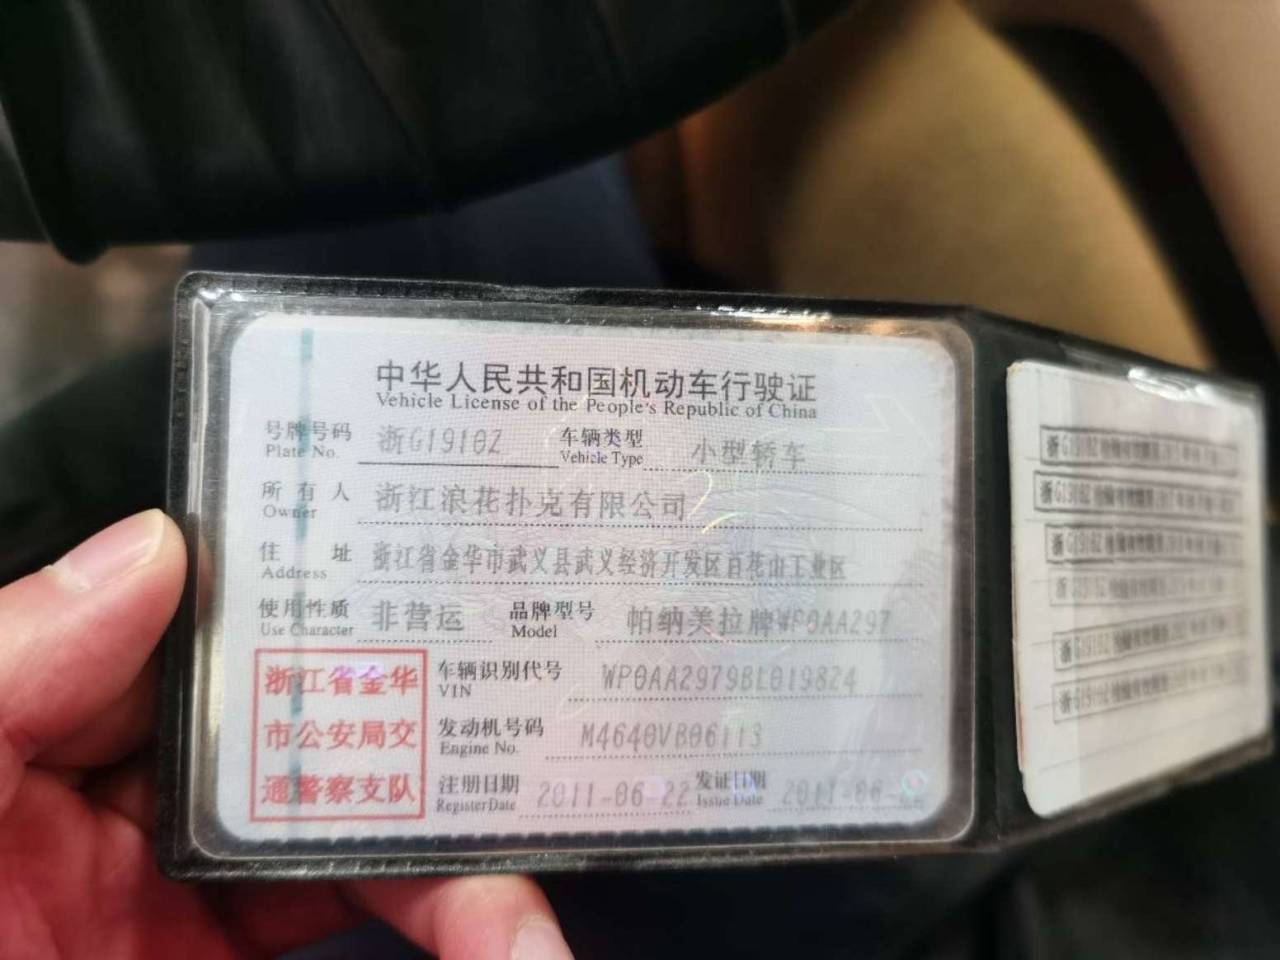 中华人民共和国机动车行驶证
Vehicle License of the People's Republic of China
号牌号码 浙G1910Z 车辆类型 小型轿车
Plate No. Vehicle Type
所有人 浙江浪花扑克有限公司
Owner
住址 浙江省金华市武义县武义经济开发区百花山工业区
Address
使用性质 非营运 品牌型号 帕纳美拉牌WP0AA297
Use Character Model
浙江省金华 车辆识别代号 WP0AA2979BL019824
VIN
市公安局交 发动机号码 M4640VB06113
Engine No.
通警察支队 注册日期 2011-06-22 发证日期 2011-06-
Register Date Issue Date
浙G1910Z
浙G1910Z
浙G1910Z
浙G1910Z
浙G1910Z
浙G1910Z